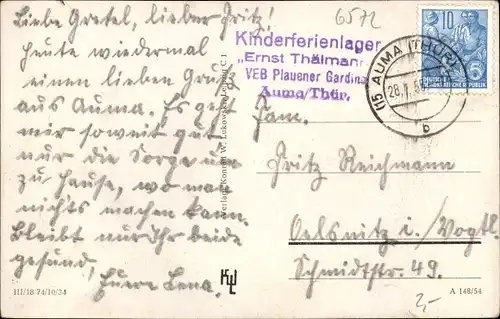 Liebe Gretel, lieber Fritz!
Heute wiedermal
einen lieben Gruß
aus Auma. Es geht
mir soweit gut
nur die Sorge um
zu Hause, wo man
nichts machen kann.
Bleibt nur Ihr beide
gesund, Euere Lena.
III/18/74/10/34
KWL
Verlag Konrad W. Lukowski, Leipzig C 1
6572
Kinderferienlager
„Ernst Thälmann
VEB Plauener Gardine
Auma/Thür.
10
DEUTSCHE
DEMOKRATISCHE REPUBLIK
(15) AUMA (THÜR)
b
Fam.
Fritz Reichmann
Oelsnitz i./Vogtl.
Schmidtstr. 49.
A 148/54
2,-